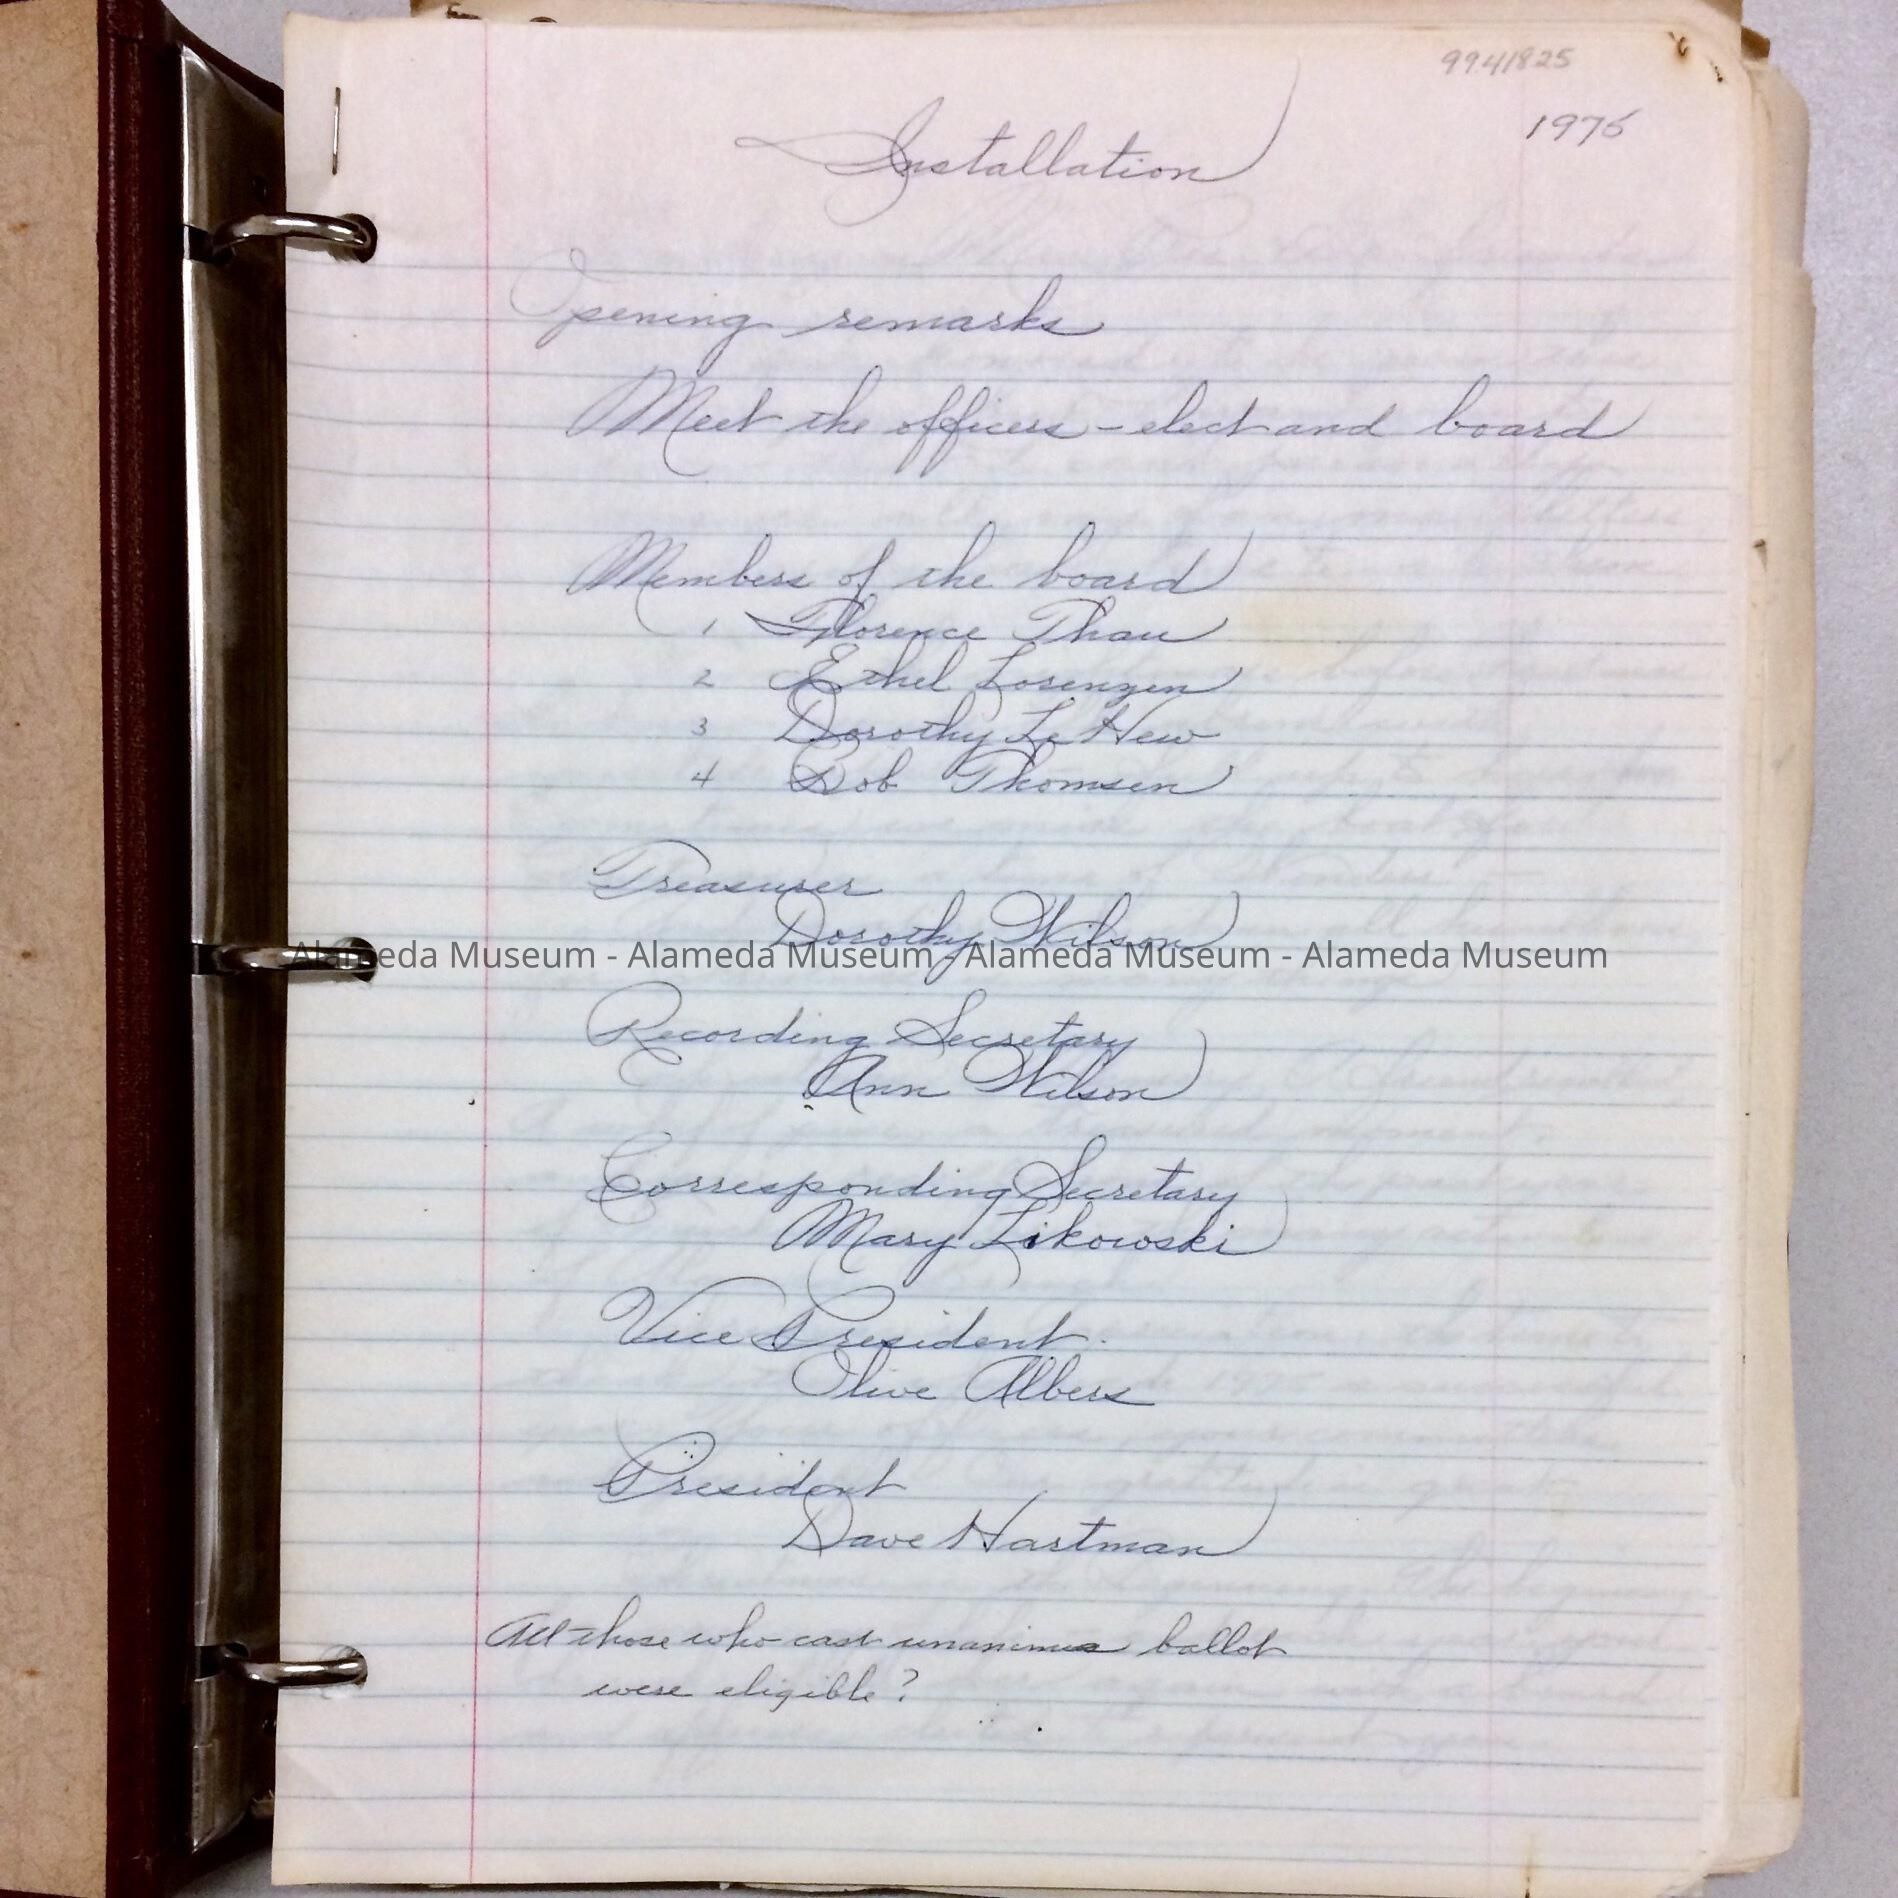 99.41825
1975
Installation
Opening remarks
Meet the officers-elect and board
Members of the board
1 Florence Thau
2 Ethel Lorenzen
3 Dorothy Le Hew
4 Bob Thomsen
Treasurer
Dorothy Wilson
Alameda Museum - Alameda Museum - Alameda Museum - Alameda Museum
Recording Secretary
Ann Wilson
Corresponding Secretary
Mary Likowski
Vice President.
Olive Albers
President
Dave Hartman
All those who cast unanimus ballot
were eligible?